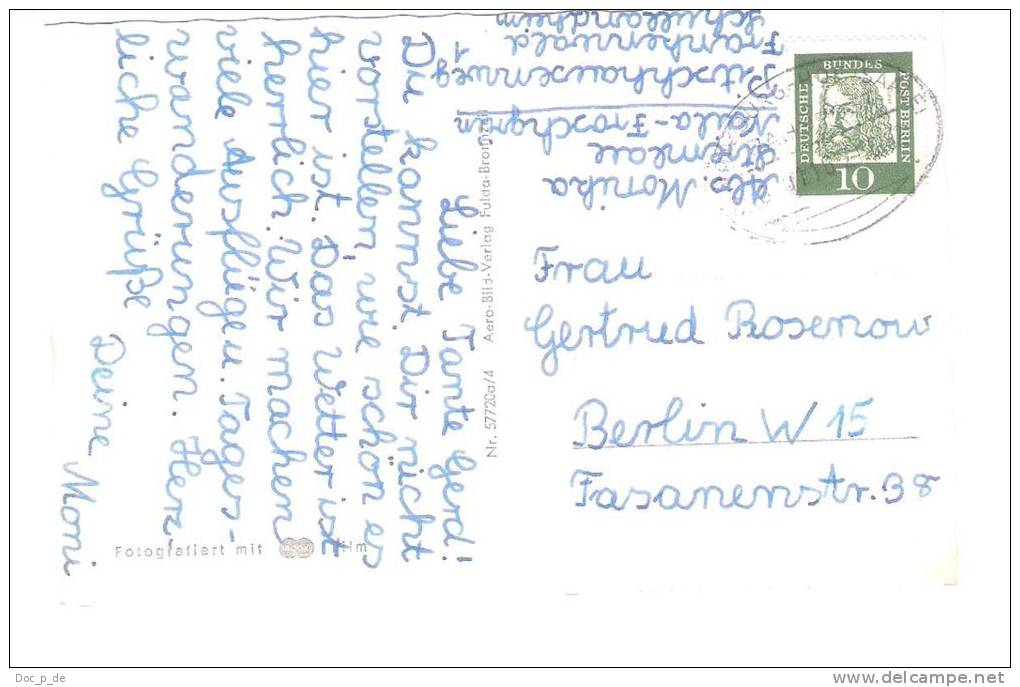 Liebe Tante Gerd!
Du kannst Dir nicht
vorstellen, wie schön es
hier ist. Das Wetter ist
herrlich. Wir machen
viele Ausflügeu. Tages-
wanderungen. Herz-
liche Grüße
Deine Moni
Fotografiert mit
Nr. 57720a/4 Aero-Bild-Verlag Fulda-Bronnzell
Abs. Monika
Naila-Froschgrün
1
Frankenwald
Schullandheim
DEUTSCHE BUNDES POST BERLIN
10
Frau
Gertrud Rosenow
Berlin W 15
Fasanenstr. 38
Doc_p_de
www.delcampe.net